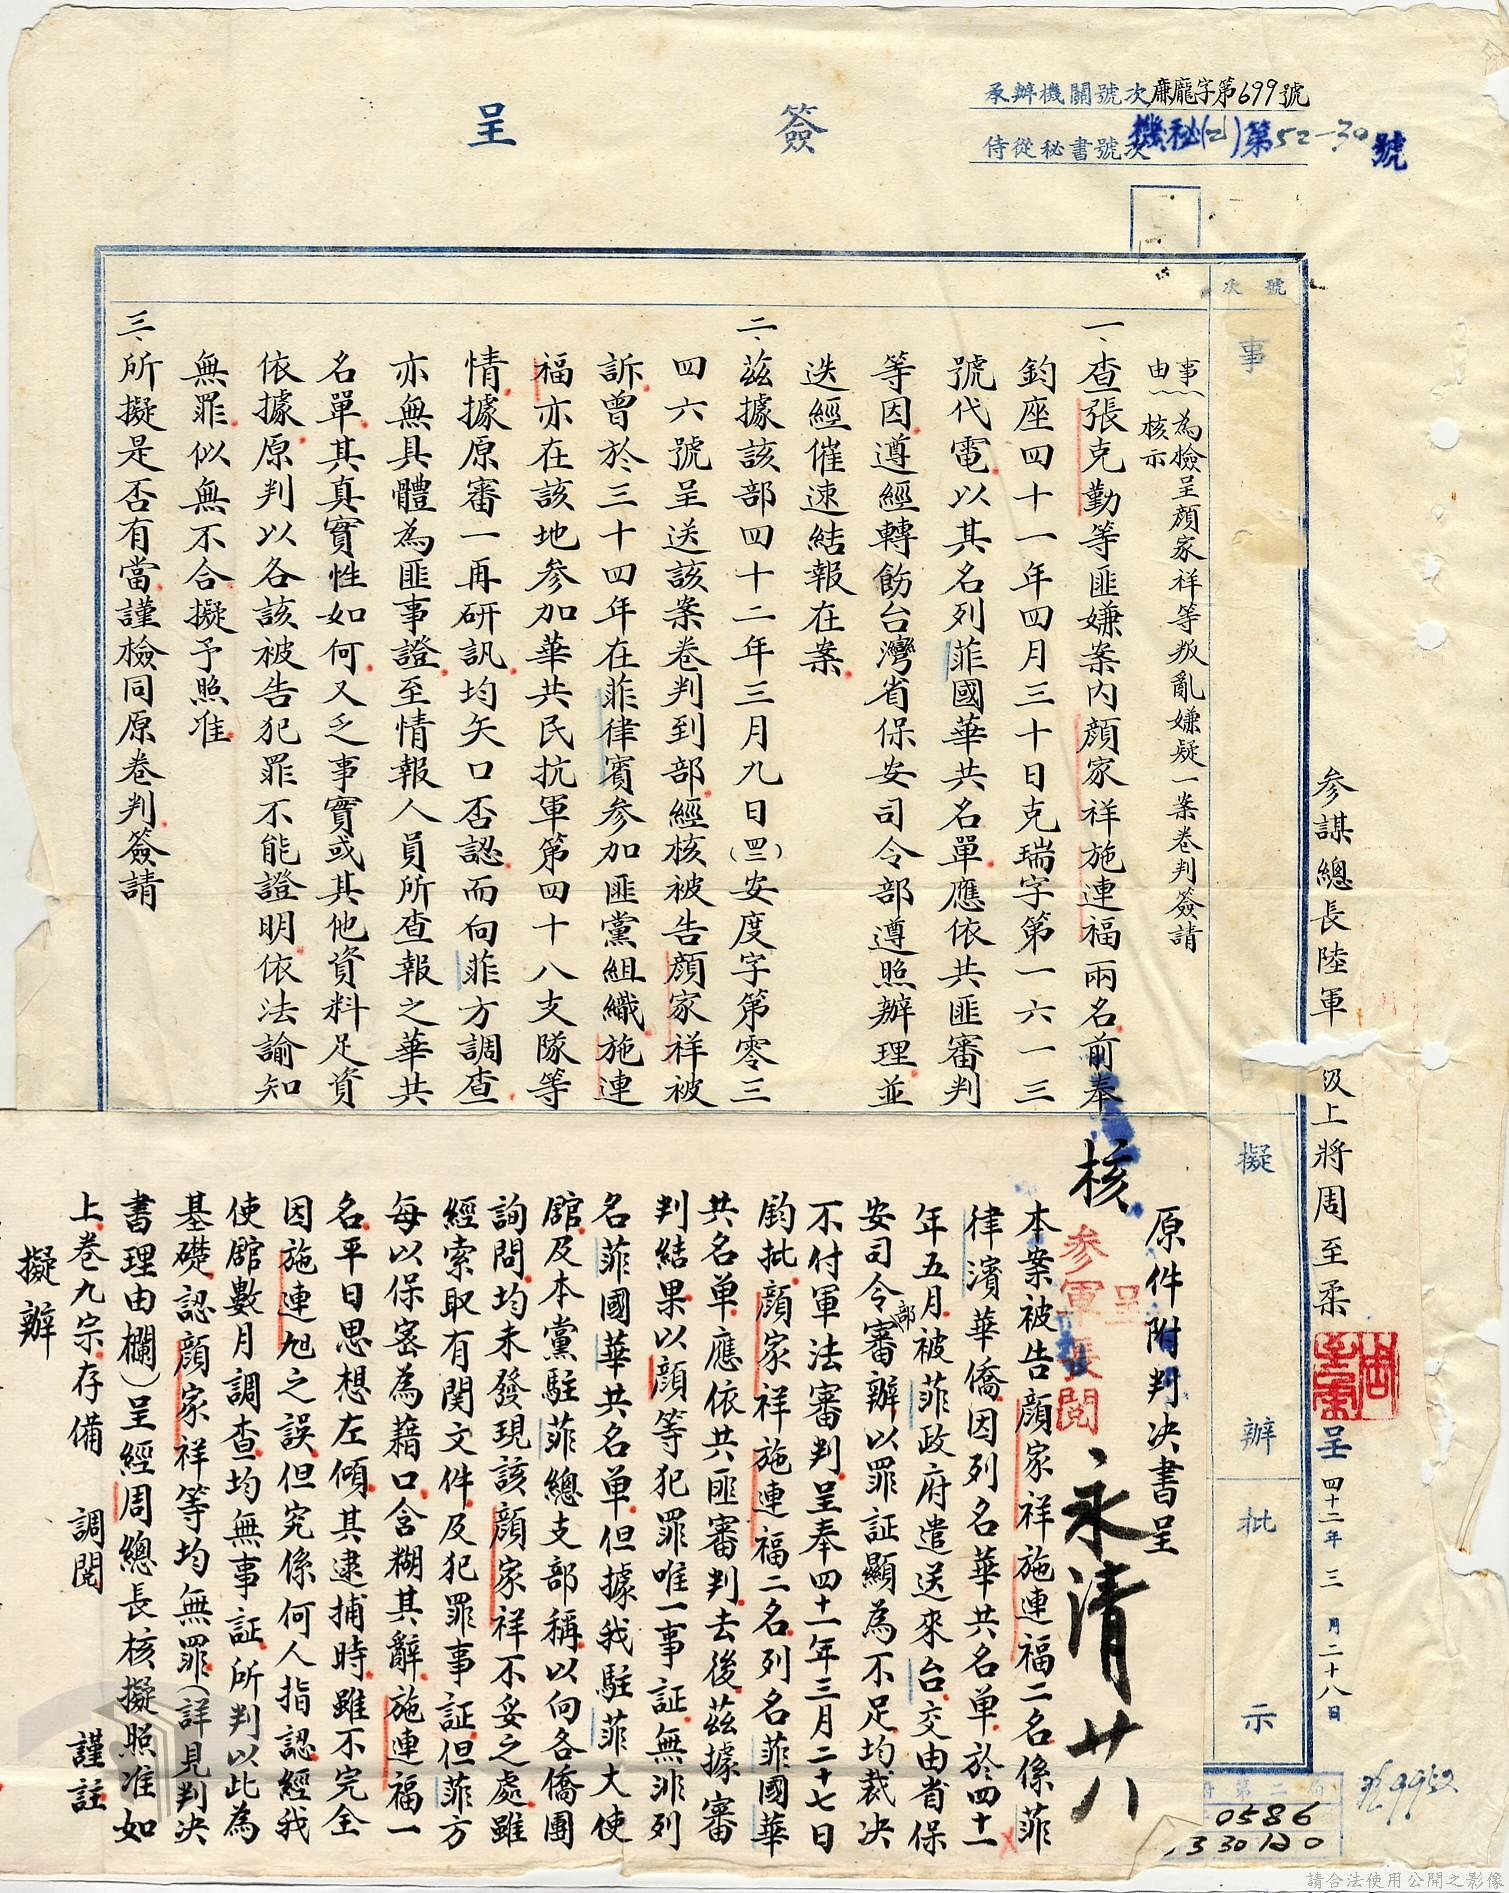 簽呈
承辦機關號次廉龐字第699號
侍從秘書號次機秘(乙)第52-30號
號次
事
擬辦
批示
參謀總長陸軍
級上將周至柔
呈
四十二年三月二十八日
事由:為檢呈顏家祥等叛亂嫌疑一案卷判簽請
核示
一、查張克勤等匪嫌案內顏家祥施連福兩名前奉
鈞座四十一年四月三十日克瑞字第一六一三
號代電以其名列菲國華共名單應依共匪審判
等因遵經轉飭台灣省保安司令部遵照辦理並
迭經催速結報在案
二、茲據該部四十二年三月九日(四二)安度字第零三
四六號呈送該案卷判到部經核被告顏家祥被
訴曾於三十四年在菲律賓參加匪黨組織施連
福亦在該地參加華共民抗軍第四十八支隊等
情據原審一再研訊均矢口否認而向菲方調查
亦無具體為匪事證至情報人員所查報之華共
名單其真實性如何又乏事實或其他資料足資
依據原判以各該被告犯罪不能證明依法諭知
無罪似無不合擬予照准
三、所擬是否有當謹檢同原卷判簽請
核
原件附判決書呈
呈
參軍長閱
永清廿八
本案被告顏家祥施連福二名係菲
律濱華僑因列名華共名单於四十一
年五月被菲政府遣送來台交由省保
安司令部審辦以罪証顯為不足均裁決
不付軍法審判呈奉四十一年三月二十七日
鈞批顏家祥施連福二名列名菲國華
共名单應依共匪審判去後茲據審
判結果以顏等犯罪唯一事証無非列
名菲國華共名单但據我駐菲大使
館及本黨駐菲總支部稱以向各僑團
詢問均未發現該顏家祥不妥之處雖
經索取有関文件及犯罪事証但菲方
每以保密為藉口含糊其辭施連福一
名平日思想左傾其逮捕時雖不完全
因施連旭之誤但究係何人指認經我
使館數月調查均無事証所判以此為
基礎認顏家祥等均無罪(詳見判決
書理由欄)呈經周總長核擬照准如
上卷九宗存備 調閱 謹註
擬辦
府第二局
0586
330120
請合法使用公開之影像